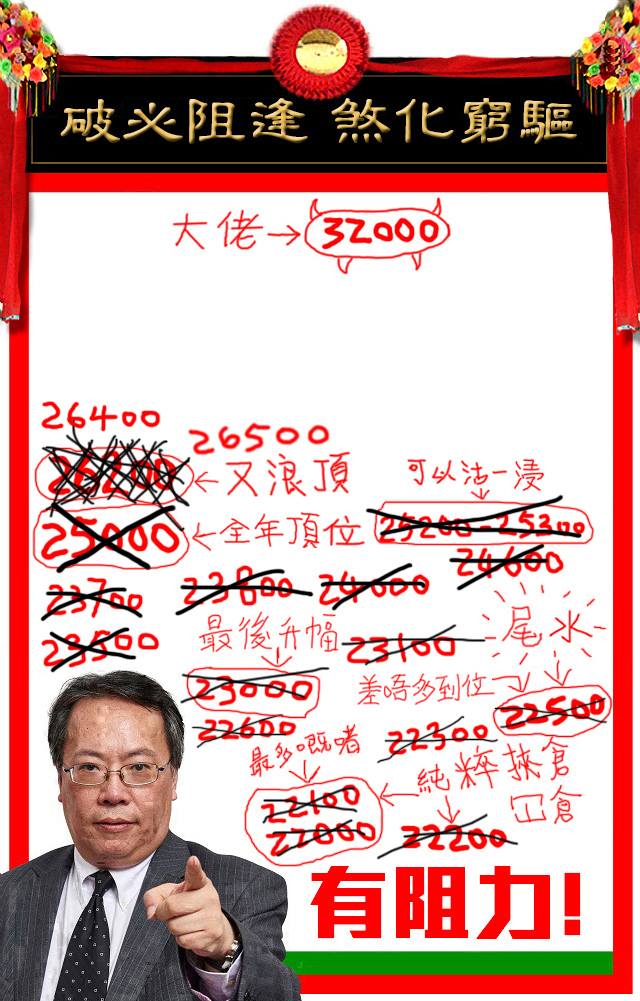 破必阻逢 煞化窮驅
大佬→32000
26400
26500
26200
←又浪頂
可以沽一浸
25000
←全年頂位
25200-25300
24600
23700
23800
24000
23500
最後升幅
23100
尾水
23000
差唔多到位
22500
22600
22300
最多嘅者
純粹挾倉
冚倉
22100
22000
22200
有阻力!